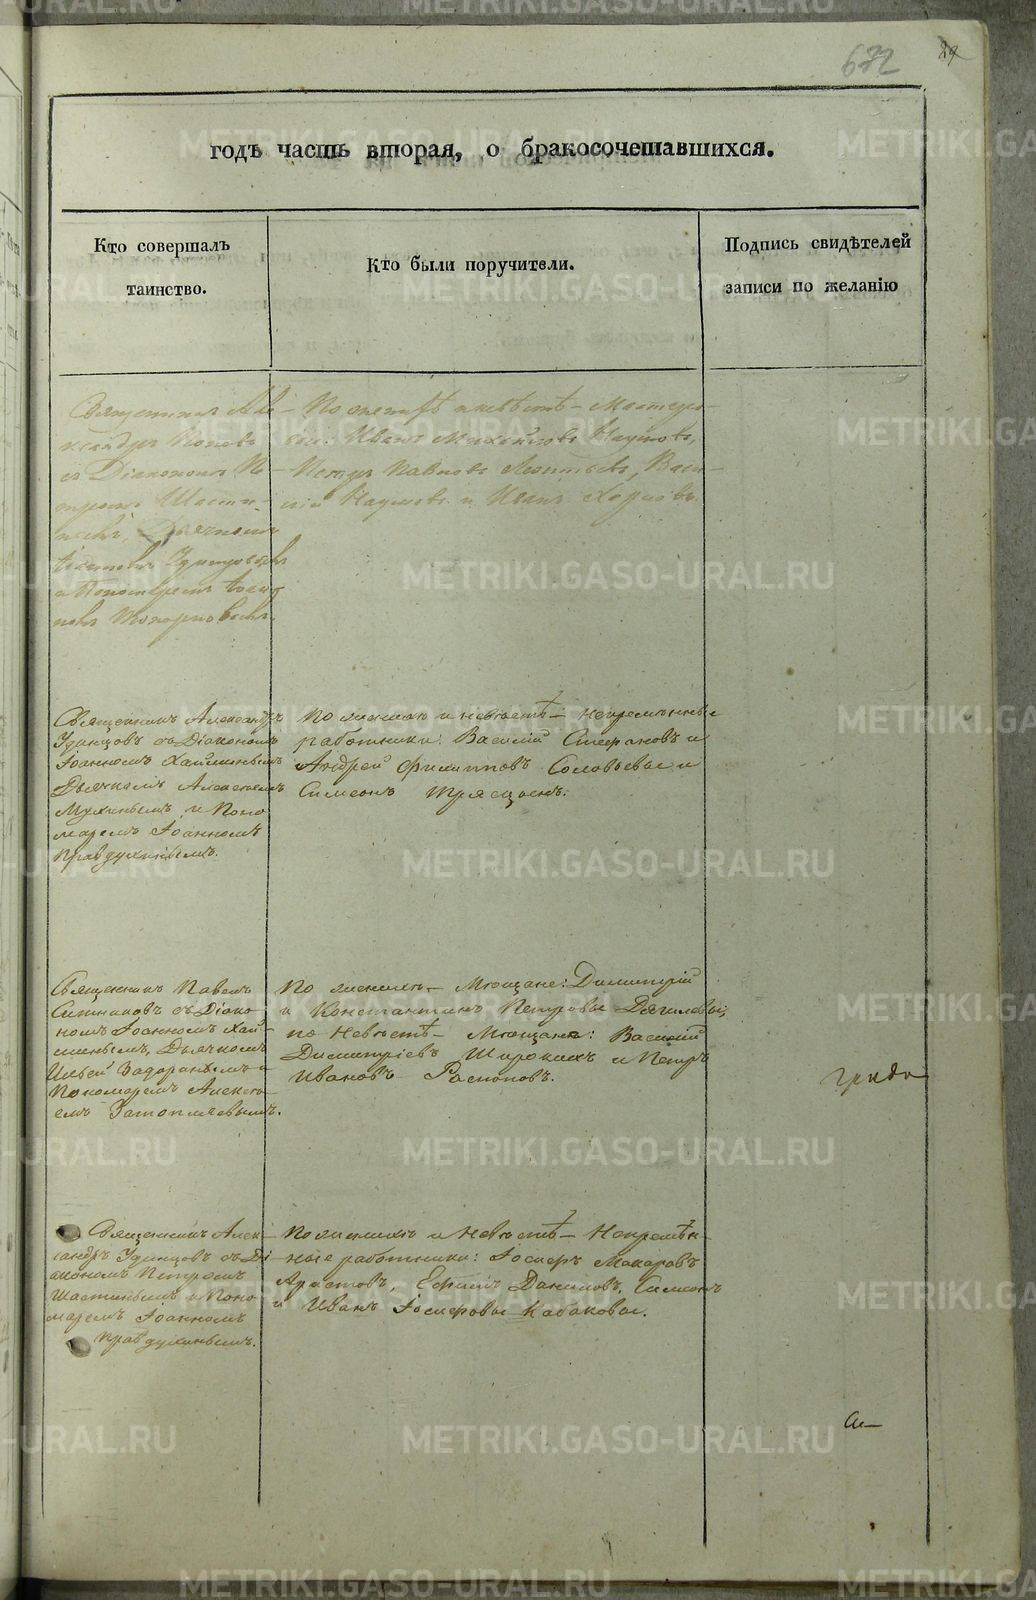 672
годъ часть вторая, о бракосочетавшихся.
Кто совершалъ
таинство.
Кто были поручители.
Подпись свидѣтелей
записи по желанію
Священникъ Але-
ксандръ Поповъ
съ Діакономъ Пе-
тромъ Шасти-
нымъ, Дьячкомъ
По женихѣ и невѣстѣ - Мастеро-
вые: Иванъ Михайловъ Наумовъ,
Петръ Павловъ Леонтьевъ, Васи-
лій Наумовъ и Иванъ
Священникъ Александръ
Удинцовъ съ Діакономъ
Іоанномъ Хайминымъ
Дьячкомъ Алексеемъ
Мухинымъ и Поно
маремъ Іоанномъ
Правдухинымъ.
По женихѣ и невѣстѣ - Непремѣнные
работники: Василій Стефановъ и
Андрей Филипповъ Соловьевы и
Симеонъ Трясцынъ.
Священникъ Павелъ
Ситниковъ съ Діако-
номъ Іоанномъ Хай-
минымъ, Дьячкомъ
Ильей Задоринымъ и
Пономаремъ Алексѣ-
емъ Затопляевымъ.
По женихѣ - Мѣщане: Димитрій
и Константинъ Петровы Дягилевы;
по Невѣстѣ - Мѣщане: Василій
Димитріевъ Широкихъ и Петръ
Ивановъ Распоповъ.
Священникъ Алек-
сандръ Удинцовъ съ Ді-
акономъ Петромъ
Шастинымъ и Поно
маремъ Іоанномъ
Правдухинымъ.
По женихѣ и Невѣстѣ - Непремѣн-
ные работники: Іосифъ Макаровъ
Аристовъ, Ефимъ Даниловъ, Симеонъ
и Иванъ Іосифовы Кабаковы.
METRIKI.GASO-URAL.RU